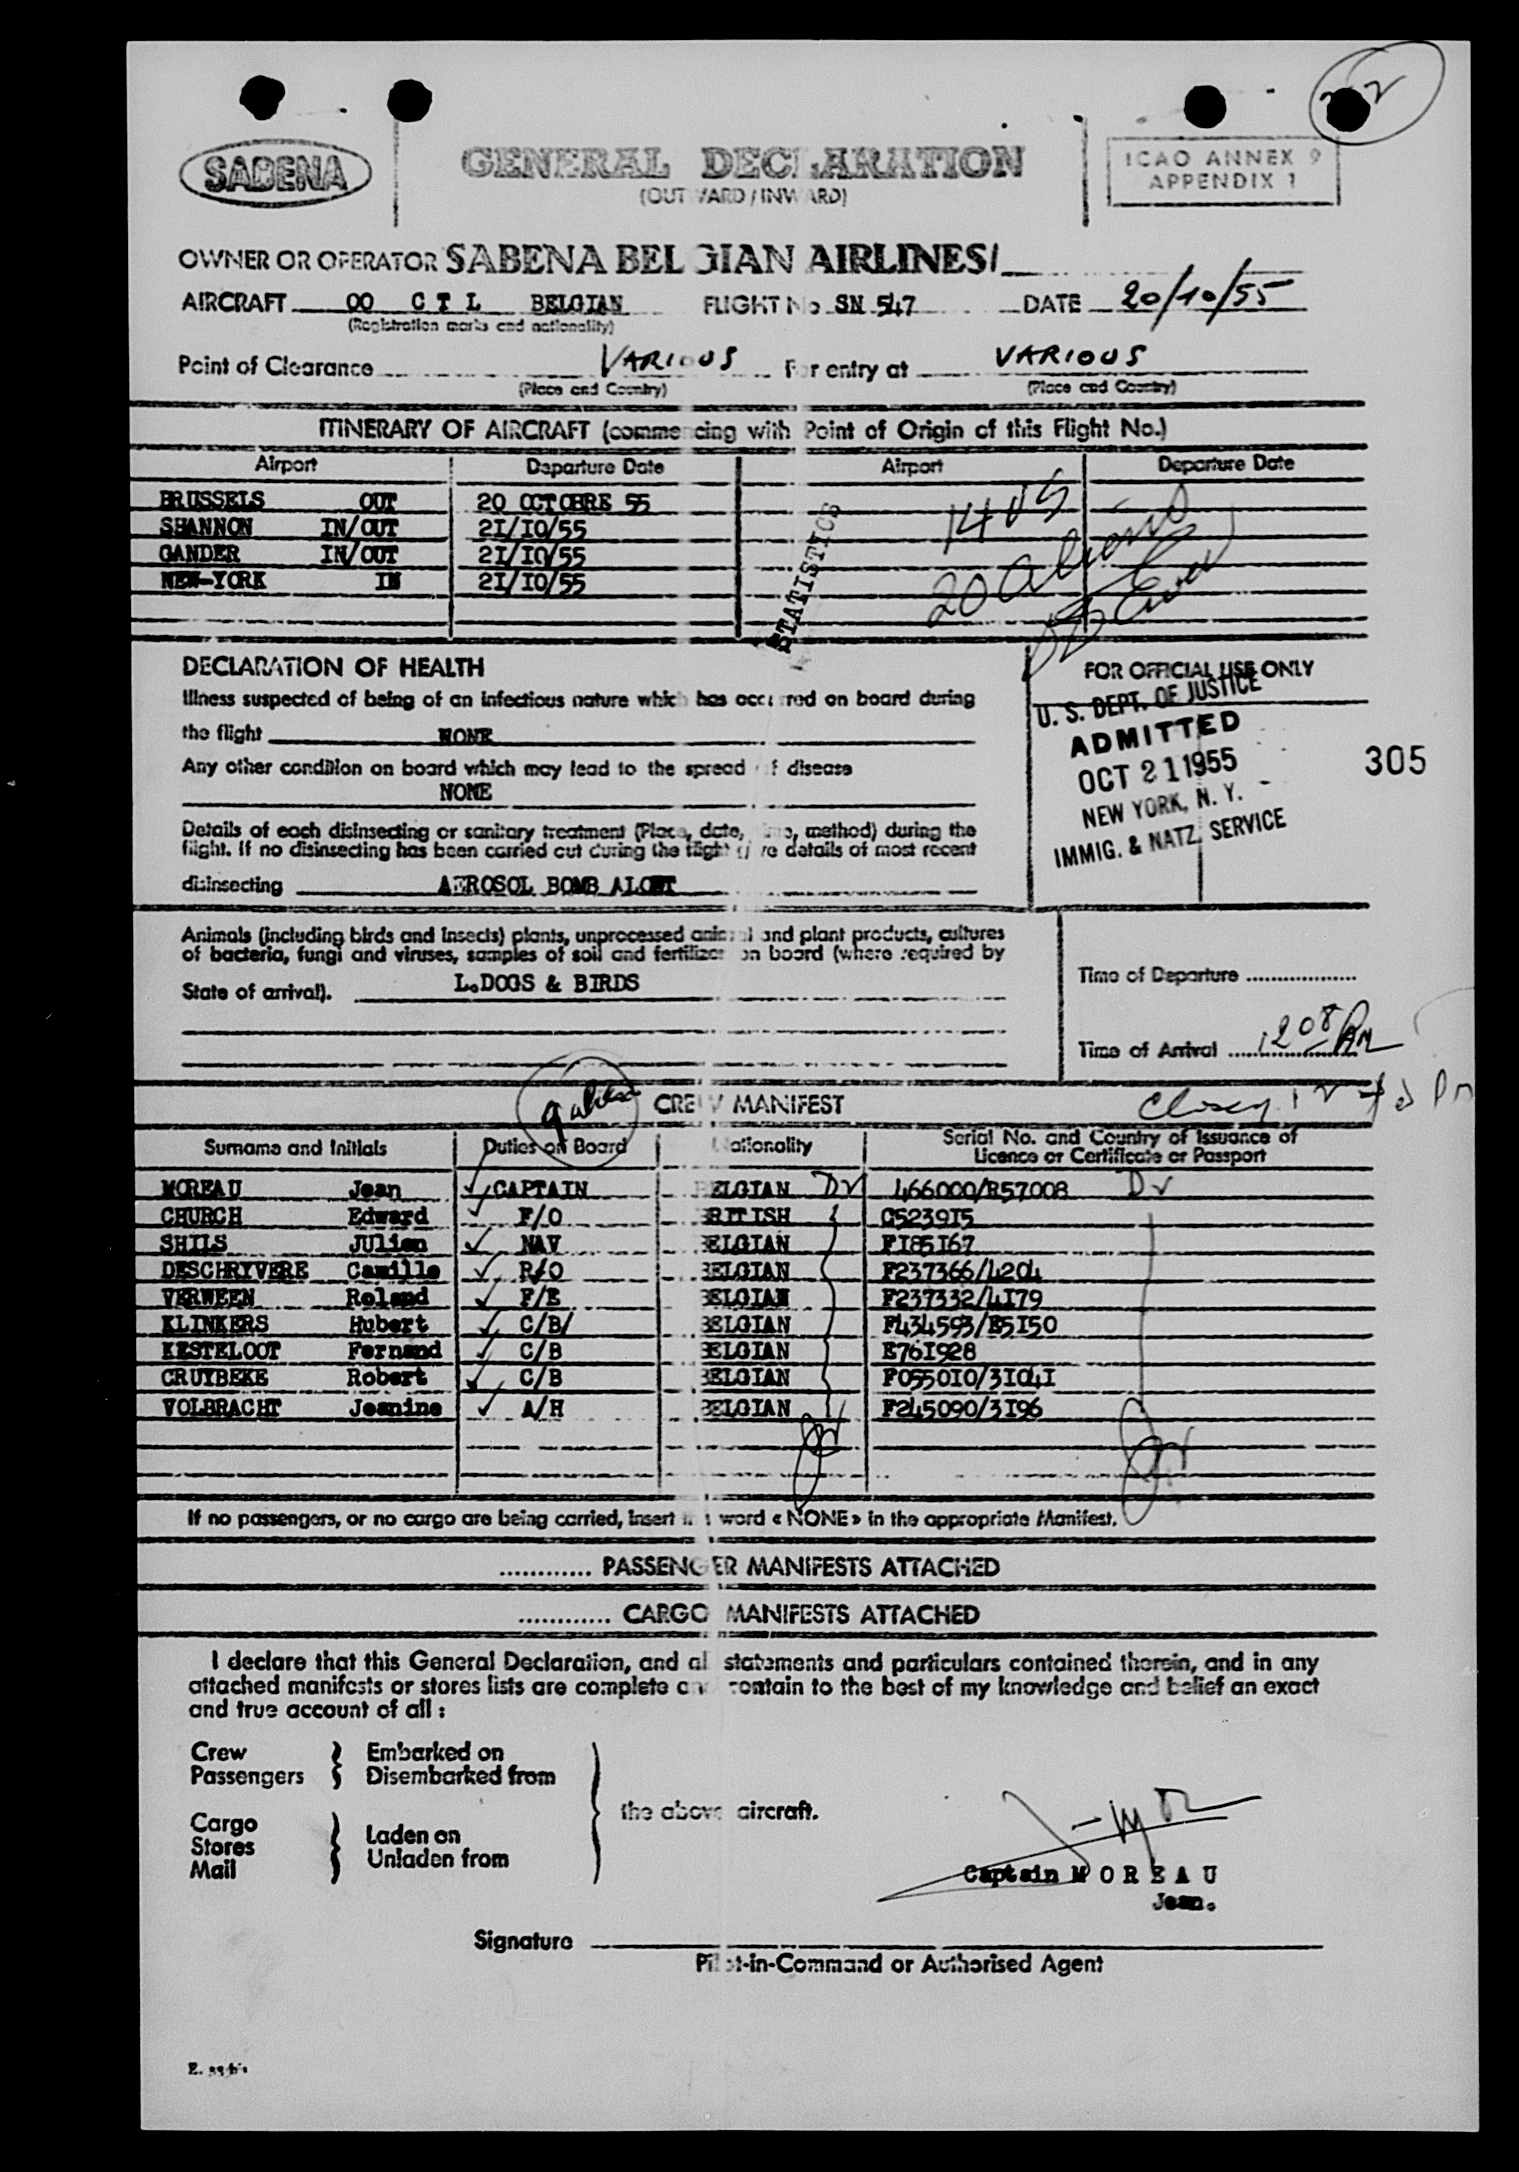 22
SABENA
GENERAL DECLARATION
(OUTWARD / INWARD)
ICAO ANNEX 9
APPENDIX 1
OWNER OR OPERATOR SABENA BELGIAN AIRLINES/
AIRCRAFT OO C T L BELGIAN FLIGHT No SN 547 DATE 20/10/55
(Registration marks and nationality)
Point of Clearance VARIOUS For entry at VARIOUS
(Place and Country) (Place and Country)
ITINERARY OF AIRCRAFT (commencing with Point of Origin of this Flight No.)
Airport Departure Date Airport Departure Date
BRUSSELS OUT 20 OCTOBRE 55
SHANNON IN/OUT 2I/IO/55
GANDER IN/OUT 2I/IO/55
NEW-YORK IN 2I/IO/55
STATISTICS
14 US
20 aliens
DECLARATION OF HEALTH
Illness suspected of being of an infectious nature which has occurred on board during
the flight NONE
Any other condition on board which may lead to the spread of disease
NONE
Details of each disinsecting or sanitary treatment (Place, date, time, method) during the
flight. If no disinsecting has been carried out during the flight give details of most recent
disinsecting AEROSOL BOMB ALOFT
FOR OFFICIAL USE ONLY
U. S. DEPT. OF JUSTICE
ADMITTED
OCT 21 1955
NEW YORK, N. Y.
IMMIG. & NATZ. SERVICE
305
Animals (including birds and insects) plants, unprocessed animal and plant products, cultures
of bacteria, fungi and viruses, samples of soil and fertilizer on board (where required by
State of arrival). L.DOGS & BIRDS
Time of Departure
Time of Arrival 1208 PM
CREW MANIFEST
Surname and Initials Duties on Board Nationality Serial No. and Country of Issuance of
Licence or Certificate or Passport
MOREAU Jean CAPTAIN BELGIAN 466000/B57008
CHURCH Edward F/O BRITISH C5239I5
SHILS JUlien NAV BELGIAN FI85I67
DESCHRYVERE Camille R/O BELGIAN F237366/4204
VERWEEN Roland F/E BELGIAN F237332/4I79
KLINKERS Hubert C/B/ BELGIAN F434593/E5I50
KESTELOOT Fernand C/B BELGIAN E76I928
CRUYBEKE Robert C/B BELGIAN F0550I0/3I04I
VOLBRACHT Jeanine A/H BELGIAN F245090/3I96
If no passengers, or no cargo are being carried, insert the word « NONE » in the appropriate Manifest.
............ PASSENGER MANIFESTS ATTACHED
............ CARGO MANIFESTS ATTACHED
I declare that this General Declaration, and all statements and particulars contained therein, and in any
attached manifests or stores lists are complete and contain to the best of my knowledge and belief an exact
and true account of all :
Crew
Passengers
Embarked on
Disembarked from
Cargo
Stores
Mail
Laden on
Unladen from
the above aircraft.
Captain M O R E A U
Jean.
Signature
Pilot-in-Command or Authorised Agent